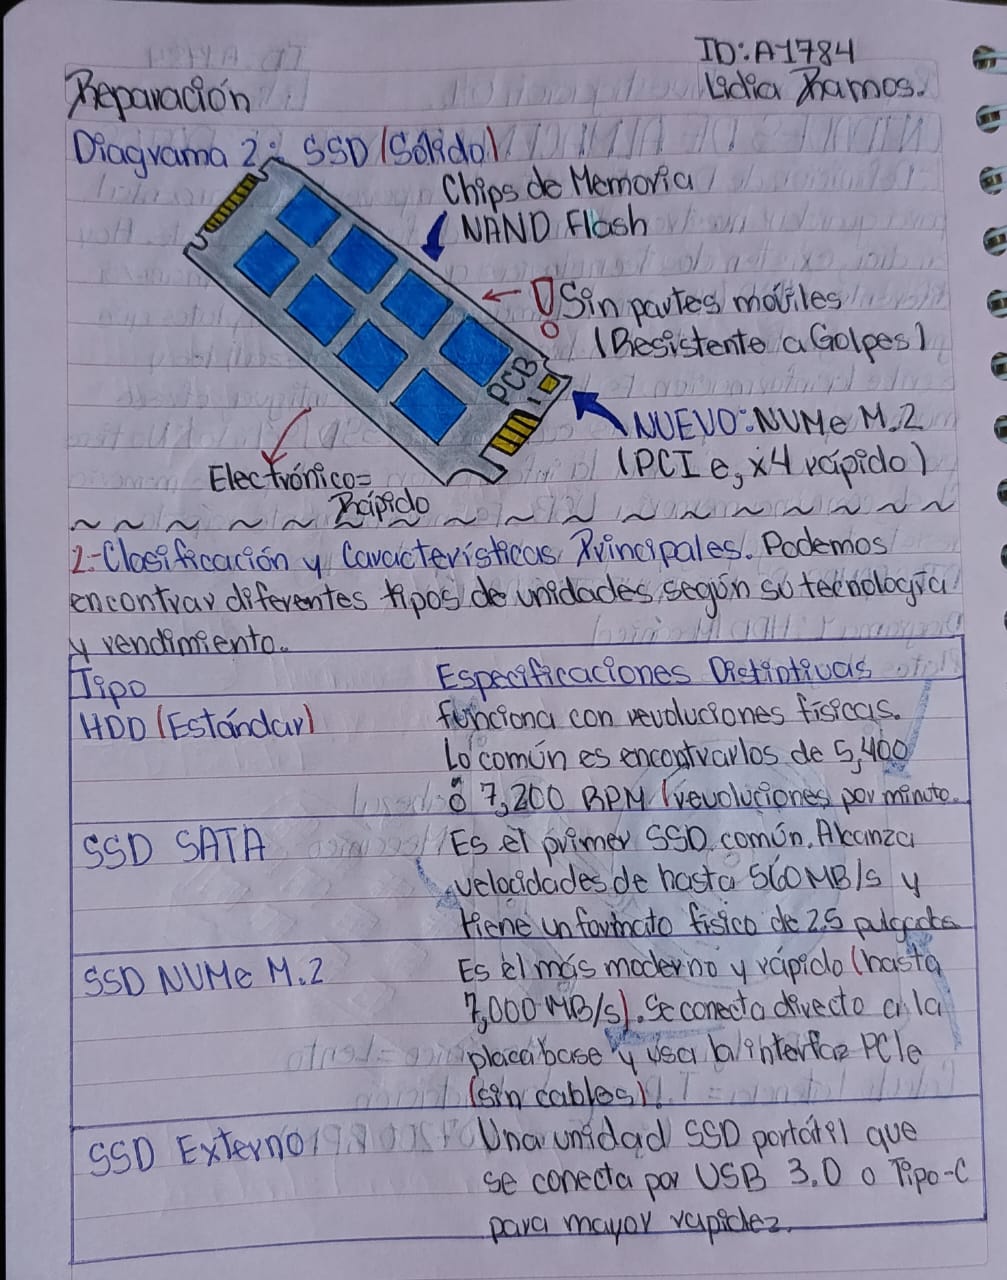 ID: A1784
Reparación
Lidia Ramos.
Diagrama 2: SSD (Sólido)
Chips de Memoria
NAND Flash
Sin partes móviles
(Resistente a Golpes)
PCB
NUEVO: NVMe M.2
(PCI e, x4 rápido)
Electrónico=
Rápido
2.-Clasificación y Características Principales. Podemos
encontrar diferentes tipos de unidades, según su tecnología
y rendimiento.
Tipo
Especificaciones Distintivas
HDD (Estándar)
funciona con revoluciones físicas.
Lo común es encontrarlos de 5,400
ó 7,200 RPM (revoluciones por minuto.
SSD SATA
Es el primer SSD común. Alcanza
velocidades de hasta 560 MB/s y
tiene un formato físico de 2.5 pulgadas
SSD NVMe M.2
Es el más moderno y rápido (hasta
7,000 MB/s). Se conecta directo a la
placa base y usa la interfaz PCIe
(sin cables)
SSD Externo
Una unidad SSD portátil que
se conecta por USB 3.0 o Tipo-C
para mayor rapidez.